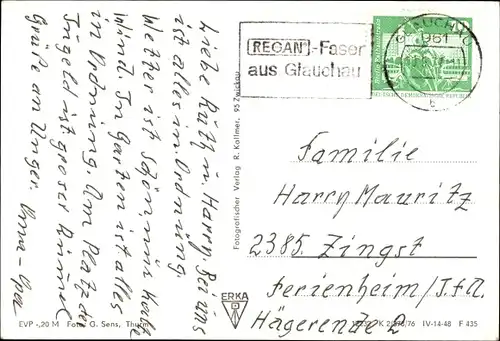 Liebe Ruth u. Harry. Bei uns
ist alles in Ordnung
Wetter ist schön, nur kalt
Wind. In Garten ist alles
in Ordnung. Am Platz der
Jugend ist groser Rummel
Grüße an Unger. Oma-Opa
REGAN-Faser
aus Glauchau
GLAUCHAU
961
b
Familie
Harry Mauritz
2385. Zingst
Ferienheim/J.f.A.
Hägerende 2
Fotografischer Verlag R. Kallmer, 95 Zwickau
ERKA
EVP -,20 M Foto: G. Sens, Thurm
IV-14-48 F 435